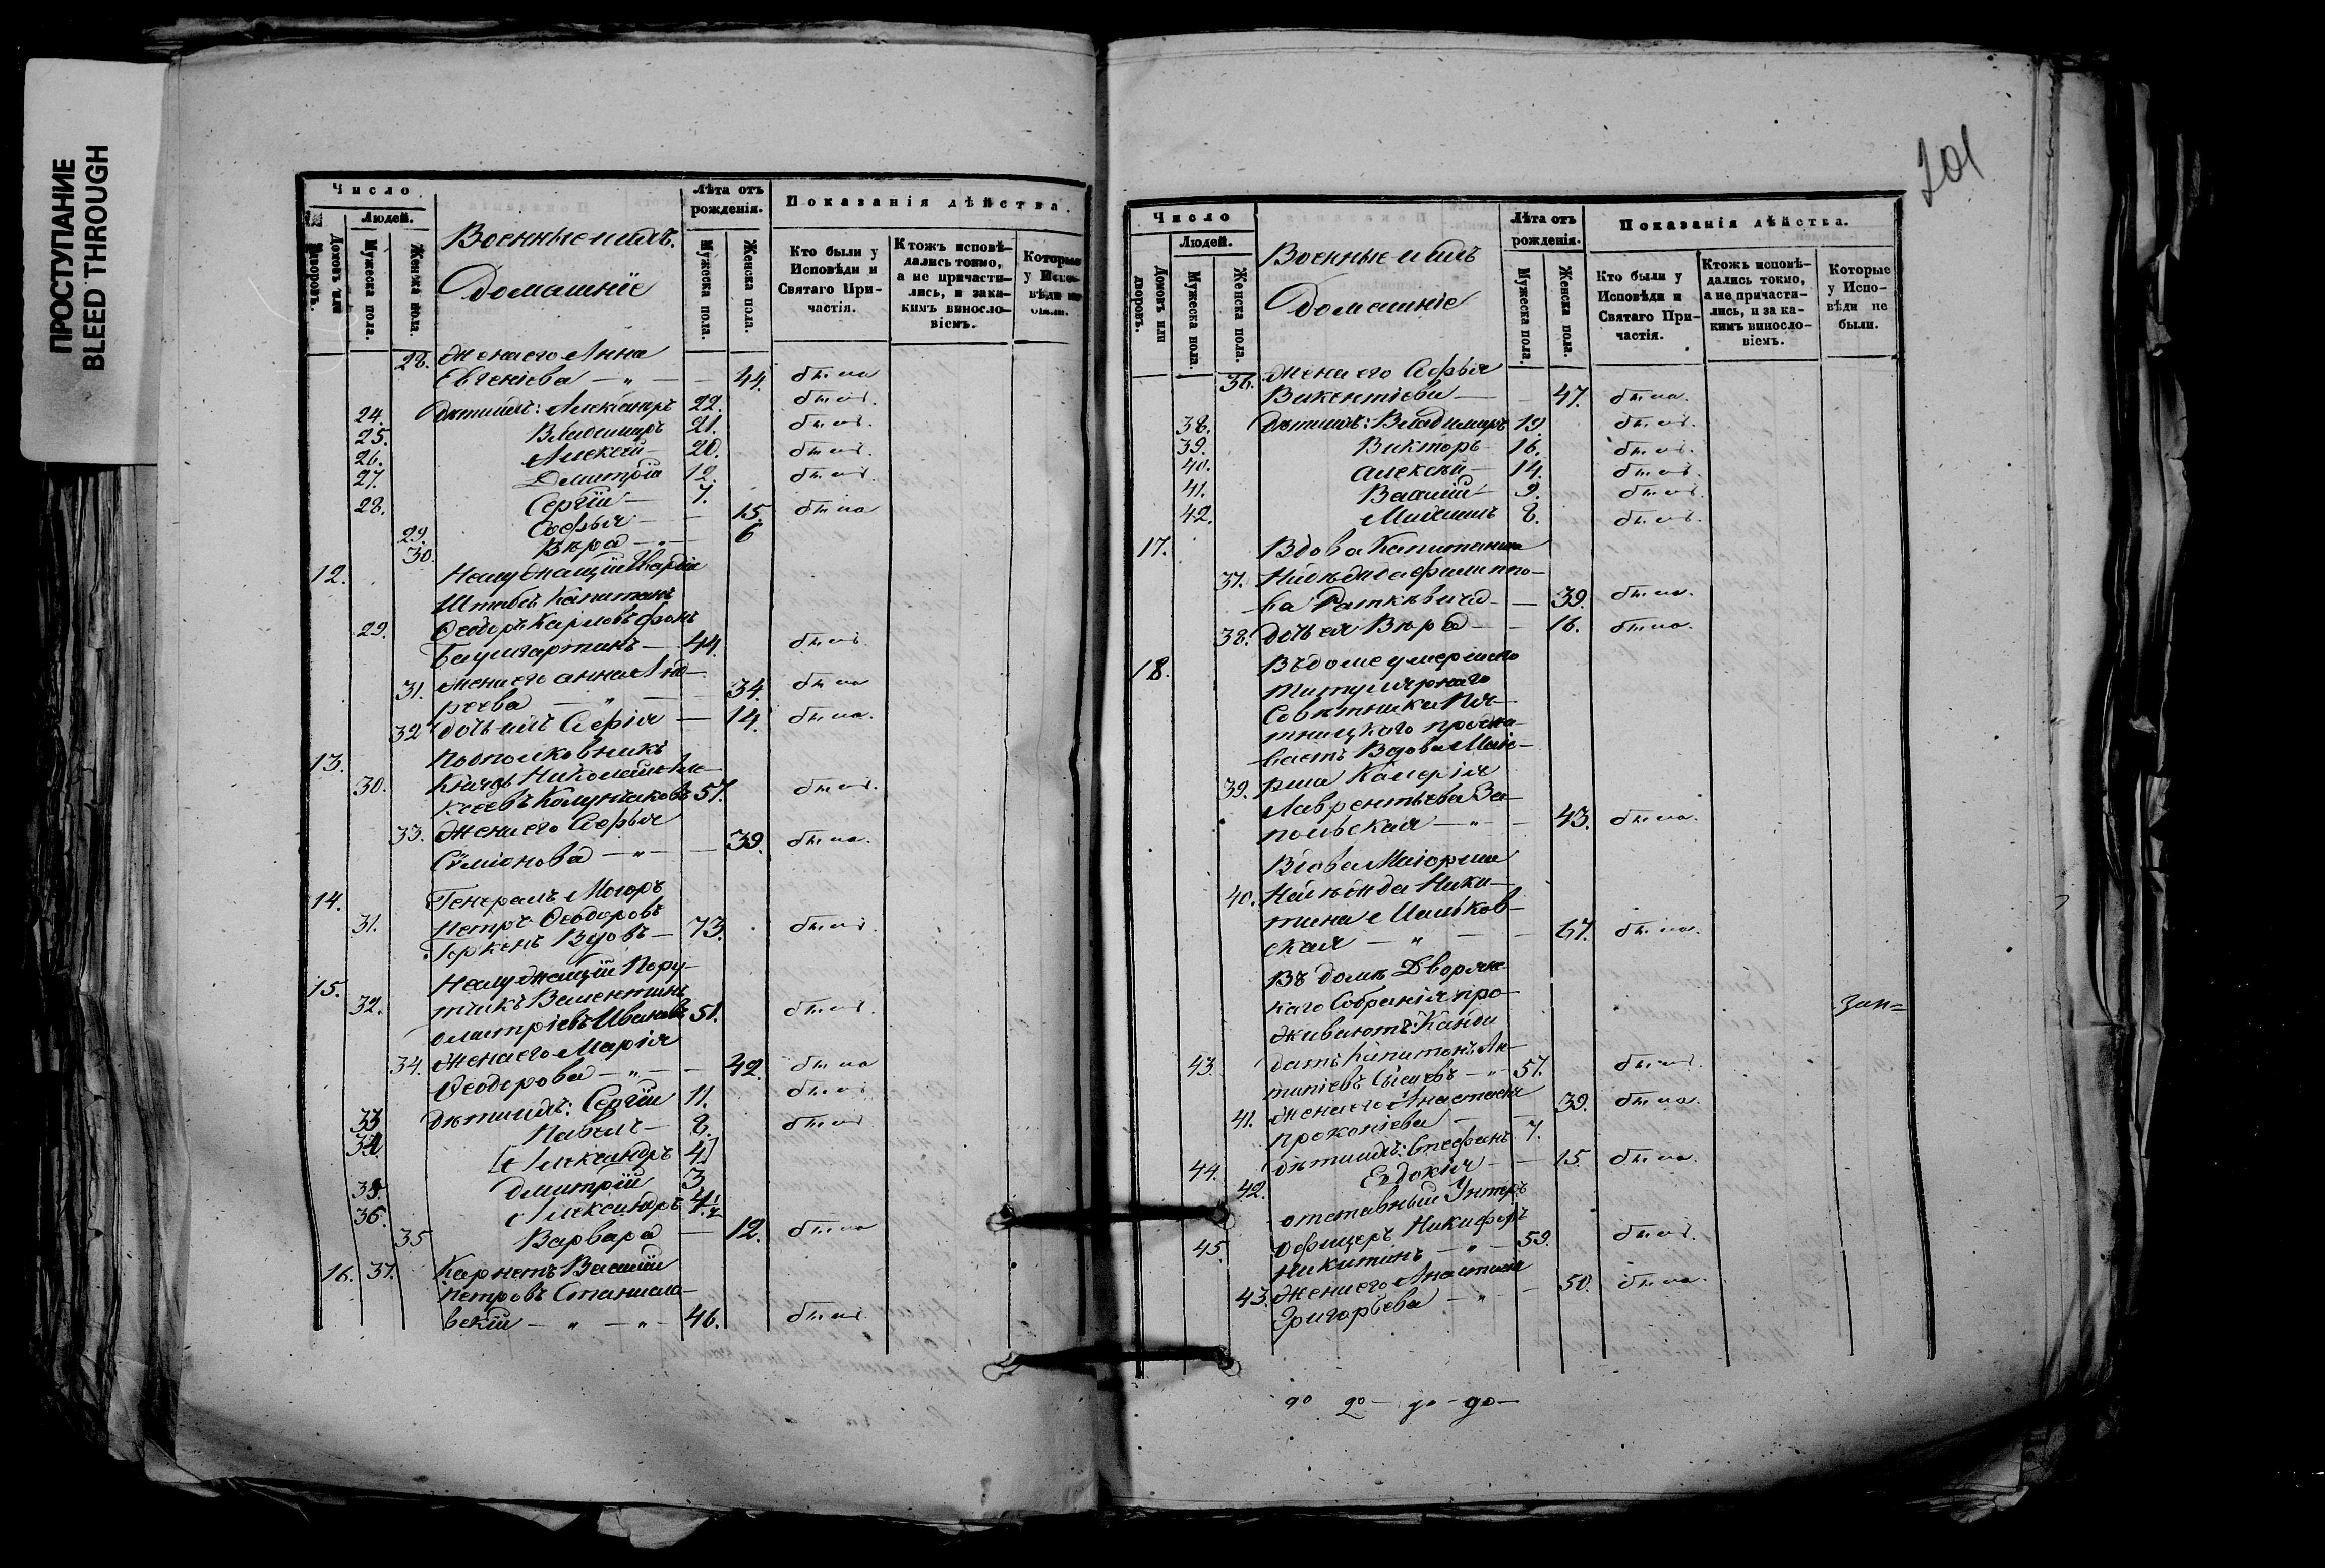 ПРОСТУПАНИЕ
BLEED THROUGH
Число
Людей.
Домовъ или дворовъ.
Мужеска пола.
Женска пола.
Военные и ихъ
Домашніе
Лѣта отъ рожденія.
Мужеска пола.
Женска пола.
Показанія дѣйства.
Кто были у Исповѣди и Святаго Причастія.
Ктожъ исповѣдались токмо, а не причастились, и за какимъ винословіемъ.
Которые у Исповѣди не были.
28. Жена его Анна
Евгеніева — „ — — 44. была
24. Дѣти ихъ: Александръ 22. былъ.
25. Владимиръ 21. былъ.
26. Алексѣй — 20. былъ.
27. Дмитрій 12. былъ.
28. Сергій — 7.
29. Софья — — 15. была
30. Вѣра — „ — 6
12. Неслужащій Гвардіи
Штабсъ Капитанъ
29. Ѳеодоръ Карловъ фонъ
Баумгартенъ — 44. былъ
31. Жена его Анна Анд-
реева — „ — — 34. была
32 Дочь ихъ Софія — 14. была.
13. Подполковникъ
30. Князь Николай Але-
ксеевъ 57. былъ.
33. Жена его Софья
Сѵміонова — „ — — 39. была.
14. Генералъ Маіоръ
31. Петръ Ѳеодоровъ
Геркенъ Вдовъ — 73. былъ.
15. Неслужащій Пору-
32. тчикъ Валентинъ
Дмитріевъ Ивановъ 51. былъ.
34. Жена его Марія
Ѳеодорова — „ — — 42. была
33 Дѣти ихъ: Сергій 11. былъ
34 Павелъ — 8. былъ
[Александръ 4]
35. Дмитрій 3
36. Александръ 4 1/2
35 Варвара — 12. была
16. 37. Карнетъ Василій
Петровъ Станисла-
вскій — „ — „ — 46. былъ
201
Число
Людей.
Домовъ или дворовъ.
Мужеска пола.
Женска пола.
Военные и ихъ
Домашніе
Лѣта отъ рожденія.
Мужеска пола.
Женска пола.
Показанія дѣйства.
Кто были у Исповѣди и Святаго Причастія.
Ктожъ исповѣдались токмо, а не причастились, и за какимъ винословіемъ.
Которые у Исповѣди не были.
36. Жена его Софья
Викентіева — — 47. была.
38. Дѣти ихъ: Владимиръ 19. былъ.
39. Викторъ 16. былъ.
40. Алексѣй — 14. былъ.
41. Василій — 9. былъ.
42. Михаилъ 8. былъ.
17. Вдова Капитанша
37. Надѣжда Филиппо-
ва Раткевичъ — 39. была.
38. Дочь ея Вѣра — — 16. была.
18. Въ доме умершаго
Титулярнаго
Совѣтника Пя-
тницкаго прожи-
ваетъ Вдова Маіо-
39. рша Калерія
Лаврентьева За-
польская — „ — 43. была.
Вдова Маіорша
40. Надѣжда Ники-
тина
ская — „ — — 67. была.
Въ домѣ Дворян-
каго Собранія про-
живаютъ: Канди
43. датъ Капитонъ Ан-
типіевъ — „ — 57. былъ.
41. Жена его Анастасія
Прокопіева — — 39. была.
44. Дѣти ихъ: Стефанъ 7.
42. Евдокія — — 15. была.
Отставный Унтеръ
45. Офицеръ Никифоръ
Никитинъ — „ — 59. былъ.
43. Жена его Анастасія
Григорьева — „ — 50. была.